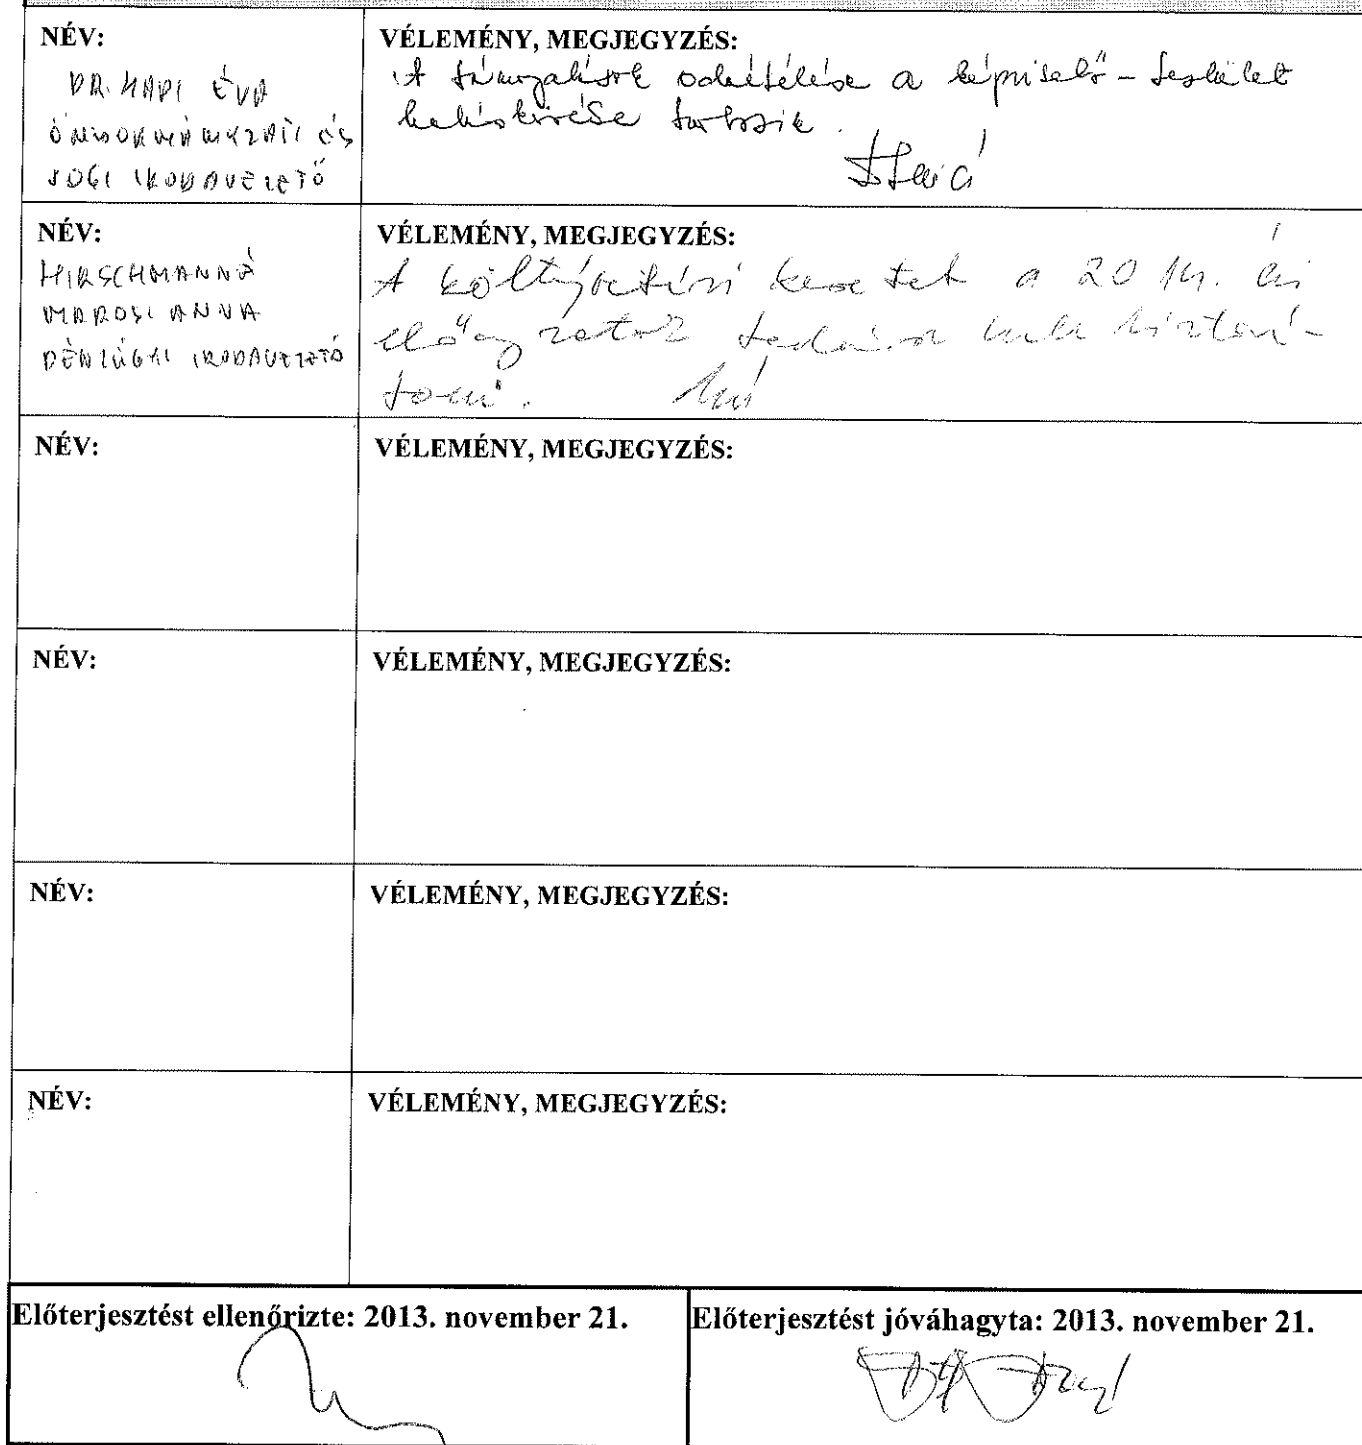 NÉV:
DR. HAPI ÉVA
ÖNKORMÁNYZATI ÉS
JOGI IRODAVEZETŐ
VÉLEMÉNY, MEGJEGYZÉS:
A támogatások odaítélése a képviselő-testület
hatáskörébe tartozik.
NÉV:
HIRSCHMANNÉ
MAROSI ANNA
PÉNZÜGYI IRODAVEZETŐ
VÉLEMÉNY, MEGJEGYZÉS:
A költségvetési keretet a 2014. évi
előirányzatok kell biztosí-
tani.
NÉV:
VÉLEMÉNY, MEGJEGYZÉS:
NÉV:
VÉLEMÉNY, MEGJEGYZÉS:
NÉV:
VÉLEMÉNY, MEGJEGYZÉS:
NÉV:
VÉLEMÉNY, MEGJEGYZÉS:
Előterjesztést ellenőrizte: 2013. november 21.
Előterjesztést jóváhagyta: 2013. november 21.